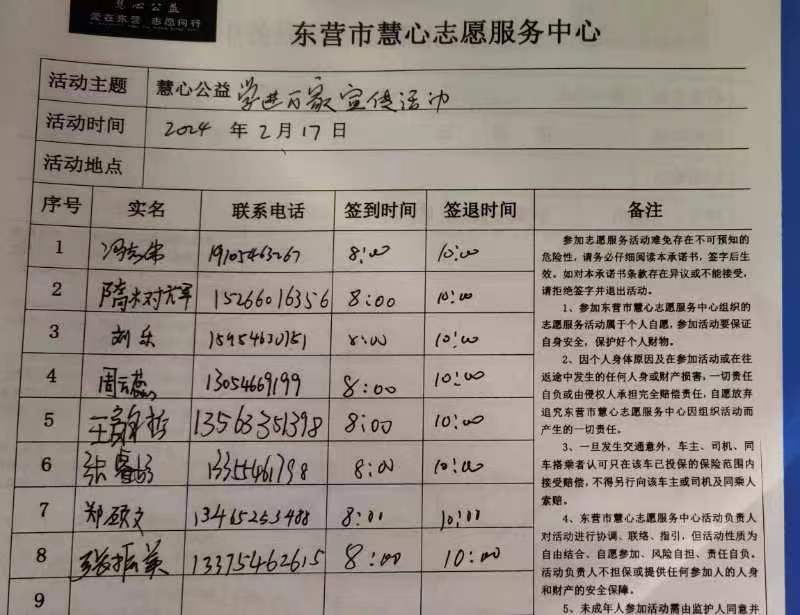 慧心公益
爱在东营 志愿同行
东营市慧心志愿服务中心
活动主题 慧心公益 学进万家宣传活动
活动时间 2024 年 2 月 17 日
活动地点
序号 实名 联系电话 签到时间 签退时间 备注
1 冯志伟 19105463267 8:00 10:00
2 隋树军 15266016356 8:00 10:00
3 刘乐 15954630151 8:00 10:00
4 周云蕊 13054669199 8:00 10:00
5 13563351398 8:00 10:00
6 张 13355461798 8:00 10:00
7 郑硕文 13465253488 8:00 10:00
8 张振美 13375462615 8:00 10:00
9
参加志愿服务活动难免存在不可预知的
危险性,请务必仔细阅读本承诺书,签字后生
效。如对本承诺书条款存在异议或不能接受,
请拒绝签字并退出活动。
1、参加东营市慧心志愿服务中心组织的
志愿服务活动属于个人自愿,参加活动要保证
自身安全,保护好个人财物。
2、因个人身体原因及在参加活动或在往
返途中发生的任何人身或财产损害,一切责任
自负或由侵权人承担完全赔偿责任,自愿放弃
追究东营市慧心志愿服务中心因组织活动而
产生的一切责任。
3、一旦发生交通意外、车主、司机、同
车搭乘者认可只在该车已投保的保险范围内
接受赔偿,不得另行向该车主或司机及同乘人
索赔。
4、东营市慧心志愿服务中心活动负责人
对活动进行协调、联络、指引,但活动性质为
自由结合、自愿参加、风险自担、责任自负。
活动负责人不担保或提供任何参加人的人身
和财产的安全保障。
5、未成年人参加活动需由监护人同意并